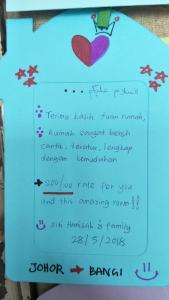 السلام عليكم ...
Terima kasih tuan rumah,
Rumah sangat bersih
cantik, teratur, lengkap
dengan kemudahan
+ 200/100 rate for you
and this amazing room!!
Siti Hamisah & family
28/5/2018
JOHOR → BANGI